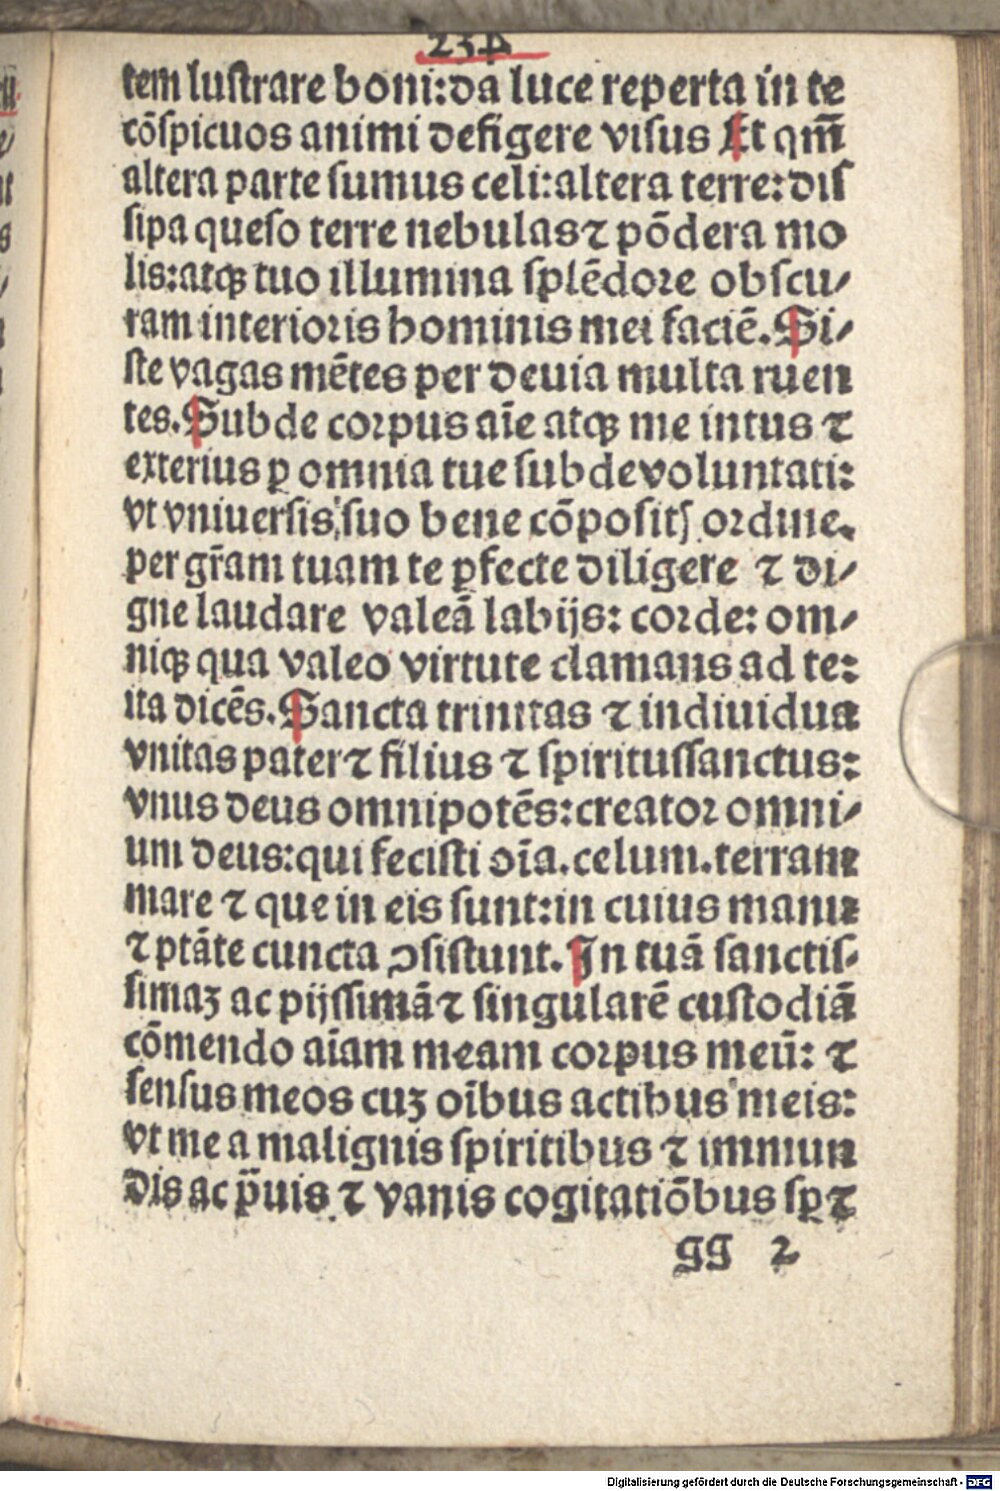 234
tem luſtrare boni:da luce reperta in te
cõſpicuos animi defigere viſus Et qm̃
altera parte ſumus celi:altera terre:diſ
ſipa queſo terre nebulas ⁊ põdera mo
lis:atqꝫ tuo illumina ſplẽdore obſcu/
ram interioris hominis mei faciẽ. Si/
ſte vagas mẽtes per deuia multa ruen
tes. Subde corpus aĩe atqꝫ me intus ⁊
exterius ꝑ omnia tue ſubde voluntati:
vt vniuerſis ſuo bene cõpoſitſ ordine.
per gr̃am tuam te ꝑfecte diligere ⁊ di/
gne laudare valeã labijs: corde: om/
niqꝫ qua valeo virtute clamans ad te:
ita dicẽs. Sancta trinitas ⁊ indiuidua
vnitas pater ⁊ filius ⁊ ſpirituſſanctus:
vnus deus omnipotẽs:creator omni/
um deus:qui feciſti oĩa.celum.terram
mare ⁊ que in eis ſunt:in cuius manu
⁊ ptãte cuncta ↄſiſtunt. In tuã ſanctiſ-
ſimaꝫ ac pijſſimã ⁊ ſingularẽ cuſtodiã
cõmendo aĩam meam corpus meũ: ⁊
ſenſus meos cuꝫ oĩbus actibus meis:
vt me a malignis ſpiritibus ⁊ immun
dis ac p̃uis ⁊ vanis cogitatiõbus ſꝑ ⁊
gg 2
Digitalisierung gefördert durch die Deutsche Forschungsgemeinschaft - DFG